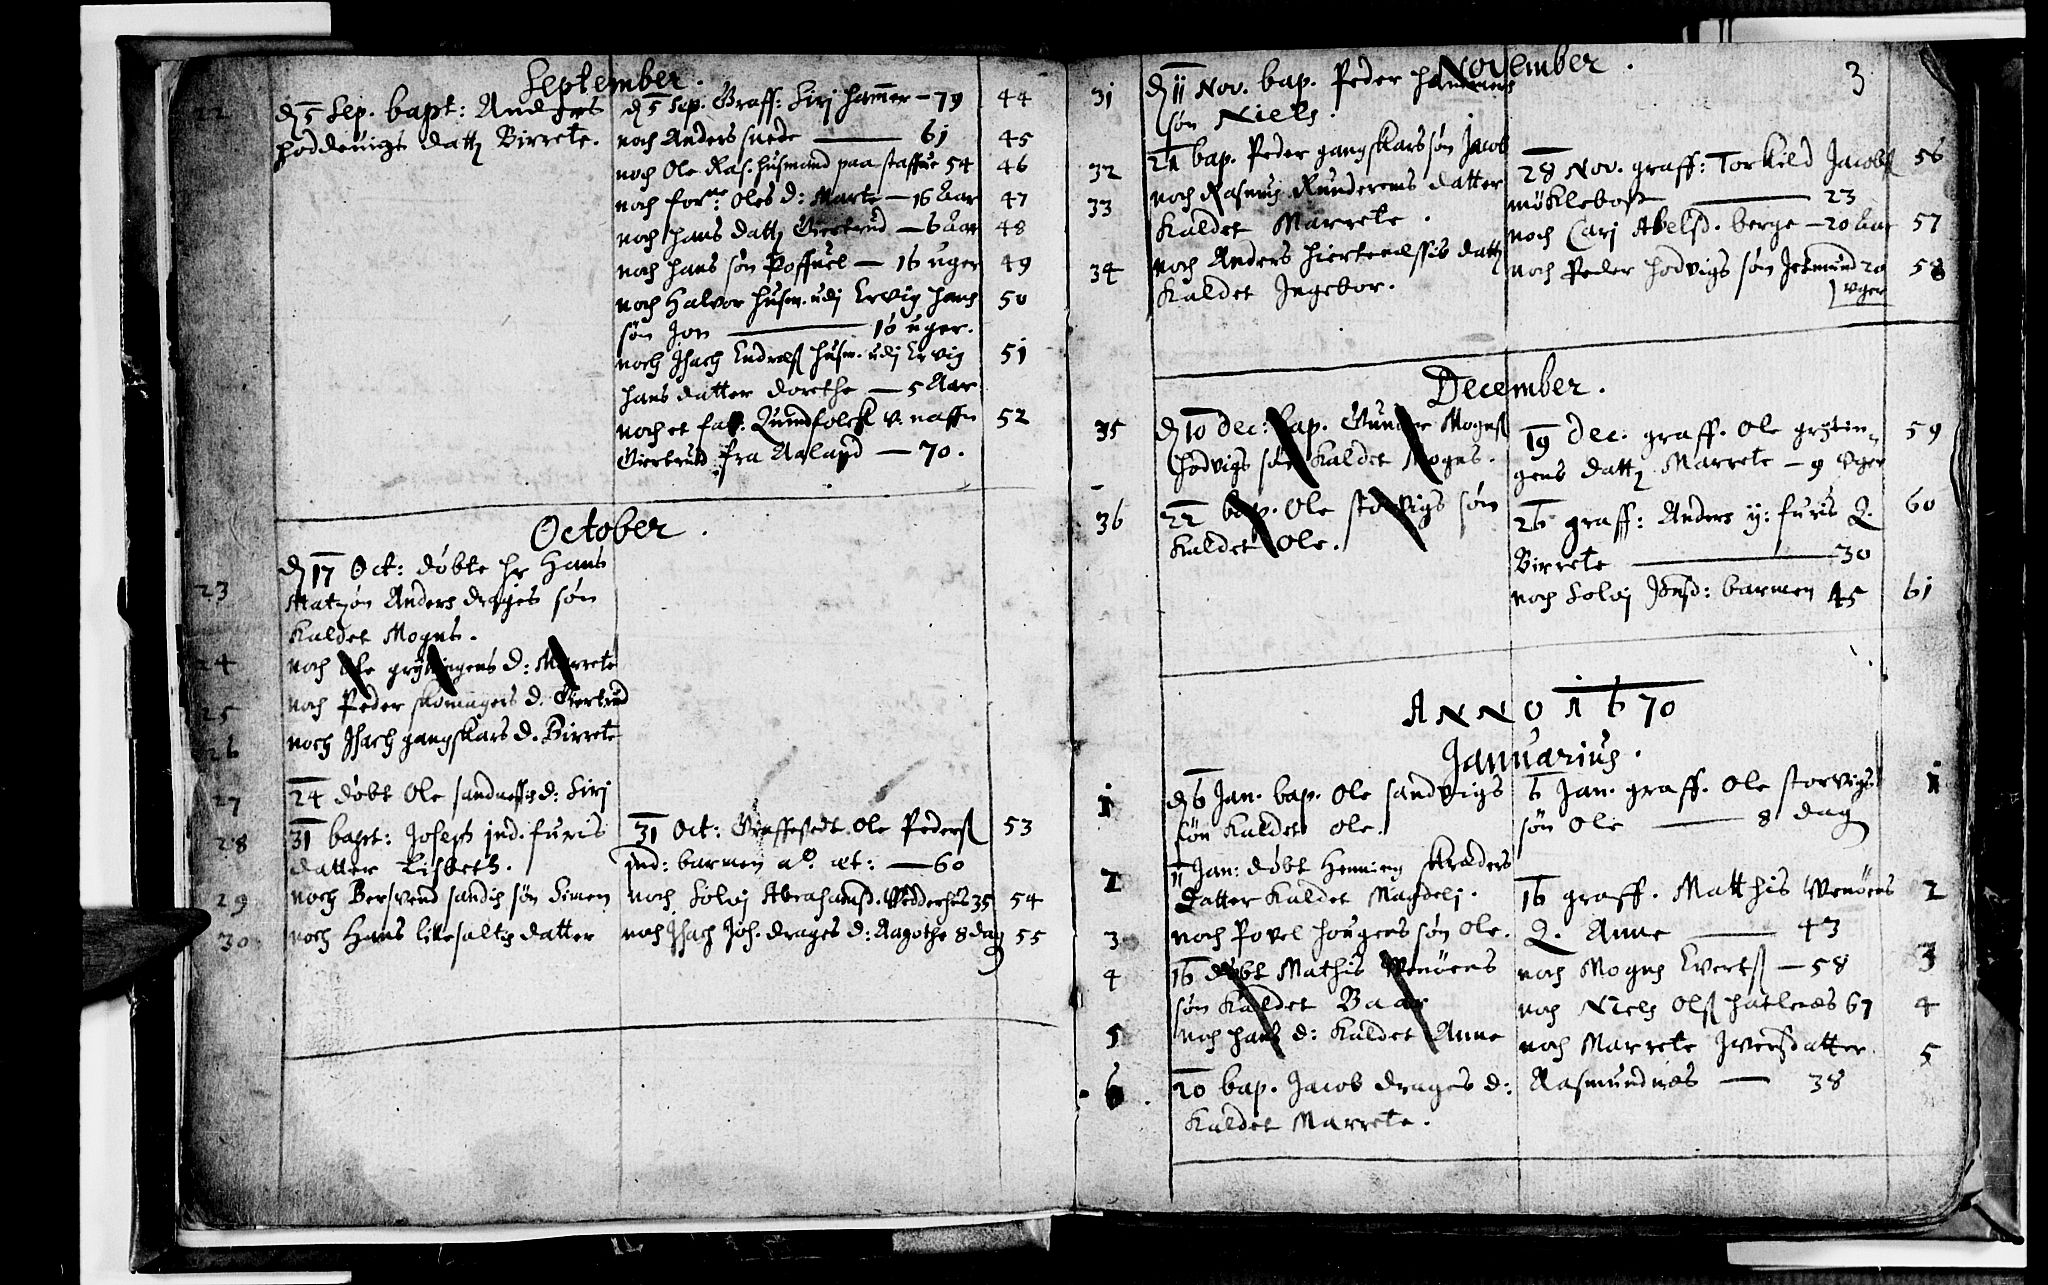 September.
22 d 5 Sep. bapt: Anders
hoddevigs datt Birrete.
d 5 Sep. Graff: Siri hammer - 79 44
noch Anders snede 61 45
noch Ole Ras. husmand paa staffue 54 46
noch forne: Oles d: Marte - 16 Aar 47
noch hans datt Giertrud - 6 Aar 48
noch hans søn Poffuel - 16 uger 49
noch Halvor husm. udj Ervig hans 50
søn Jon 16 uger.
noch Isach husm. udj Ervig 51
hans datter dorethe - 5 Aar
noch et fat. Quindfolck v. naffn 52
Giertrud fra Aaland - 70.
October.
23 d 17 Oct: døbte hr Hans
Matzøn Anders drages søn
kaldet Mogns.
24 noch Ole grytingens d: Marrete
25 noch Peder skomagers d. Giertrud
26 noch Isach gangskars d. Birrete
27 24 døbt Ole sandnessis d: Siri
28 31 bapt: Joseph ind. furis
datter Lisbeth.
29 noch sandis søn Simen
30 noch Hans litlesaltis datter
31 Oct: Graffestedt Ole Peders 53
ind: barmen ao. æt: - 60
noch Solvj Abrahamsd. Vedderhus 35 54
noch Isach Joh. drages d: Aagothe 8 dag 55
3
November.
31 d 11 Nov. bap. Peder hammers
søn Niels.
32 21 bap. Peder gangskars søn Jacob
33 noch Rasmus Runderems datter
kaldet Marrete.
34 noch Anders datt
kaldet Ingebor.
28 Nov. graff: Torkeld Jacobs 56
møklebost 23
noch Carj Abelsd. berge - 20 Aar 57
noch Peder hodvigs søn Jetmund 20 58
uger
December.
35 d 10 Dec: bap. Gunder Mogns
hodvigs søn kaldet Mogns.
36 22 bap. Ole storvigs søn
kaldet Ole.
19 Dec. graff. Ole grytin- 59
gens datt Marrete - 9 Uger
26 graff: Anders y: furis Q. 60
Birrete 30
noch Solvj Jonsd: barmen 45 61
ANNO 1670
Januarius.
1 d 6 Jan. bap. Ole sandvigs
søn kaldet Ole.
2 11 Jan: døbt Henning skræders
datter kaldet Magdelj.
3 noch Povel hougens søn Ole.
4 16 døbt Mathis Wenøens
søn kaldet Baar
5 noch hans d: kaldet Anne
6 20 bap. Jacob drages d:
kaldet Marrete.
6 Jan. graff. Ole storvigs 1
søn Ole 8 dag
16 graff. Matthis Wenøens 2
Q. Anne 43
noch Mogns Everts - 58 3
noch Niels Ols hatlenes 67 4
noch Marrete Iversdatter 5
Rasmundnes 38